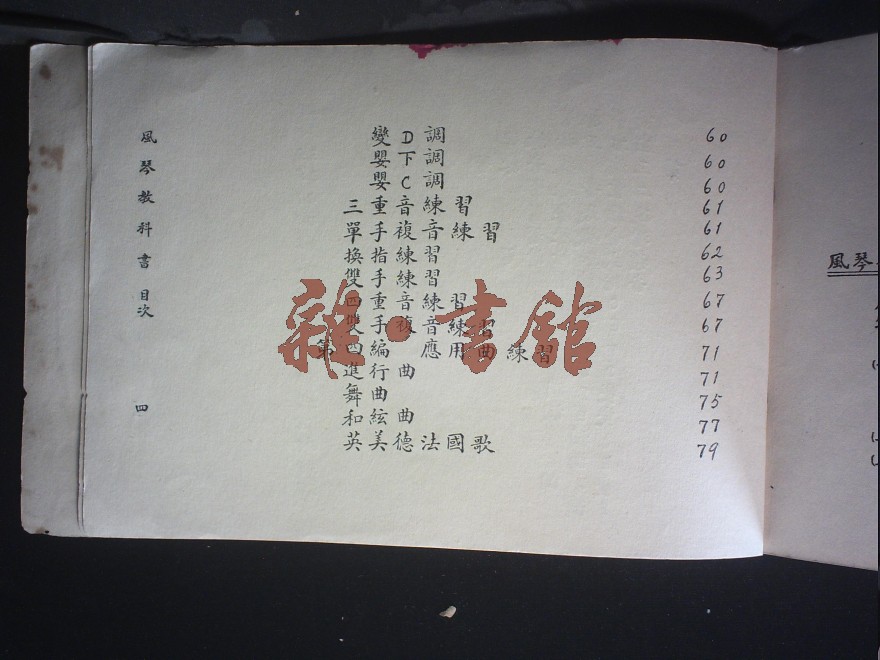 風琴教科書 目次 四
變D調 60
嬰下調 60
嬰C調 60
三重音練習 61
單手複音練習 61
換指練習 62
雙手練習 63
四重音練習 67
雙手複音練習 67
第四編 應用曲練習 71
進行曲 71
舞曲 75
和絃曲 77
英美德法國歌 79
雜·書館
風琴